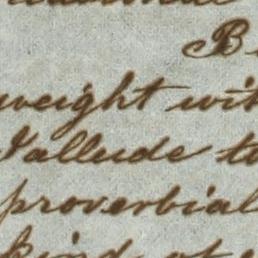 B
weight wit
I allude to
proverbial
kind of